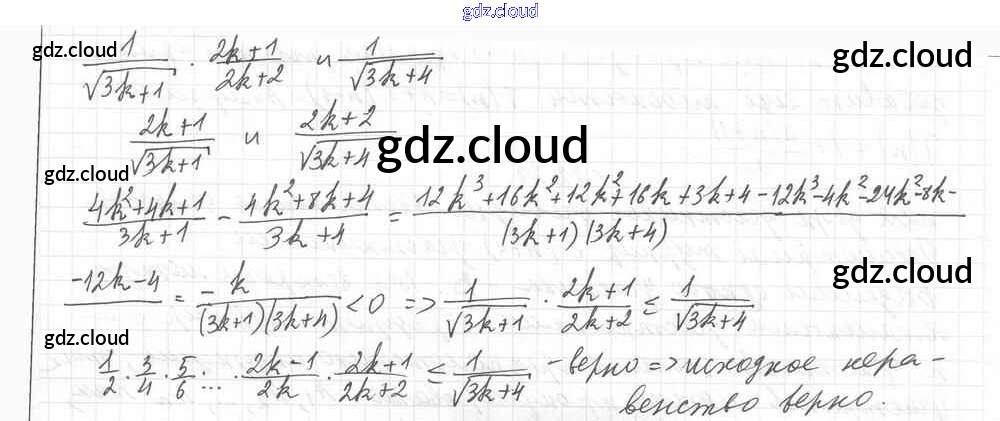 gdz.cloud
gdz.cloud gdz.cloud
1/√(3k+1) · (2k+1)/(2k+2) и 1/√(3k+4)
(2k+1)/√(3k+1) и (2k+2)/√(3k+4)
gdz.cloud
gdz.cloud
(4k²+4k+1)/(3k+1) - (4k²+8k+4)/(3k+4) = (12k³+16k²+12k²+16k+3k+4-12k³-4k²-24k²-8k-
-12k-4)/((3k+1)(3k+4)) = -k/((3k+1)(3k+4)) < 0 => 1/√(3k+1) · (2k+1)/(2k+2) ≤ 1/√(3k+4)
gdz.cloud
gdz.cloud
1/2 · 3/4 · 5/6 ... · (2k-1)/2k · (2k+1)/(2k+2) ≤ 1/√(3k+4) - верно => исходное нера-
венство верно.